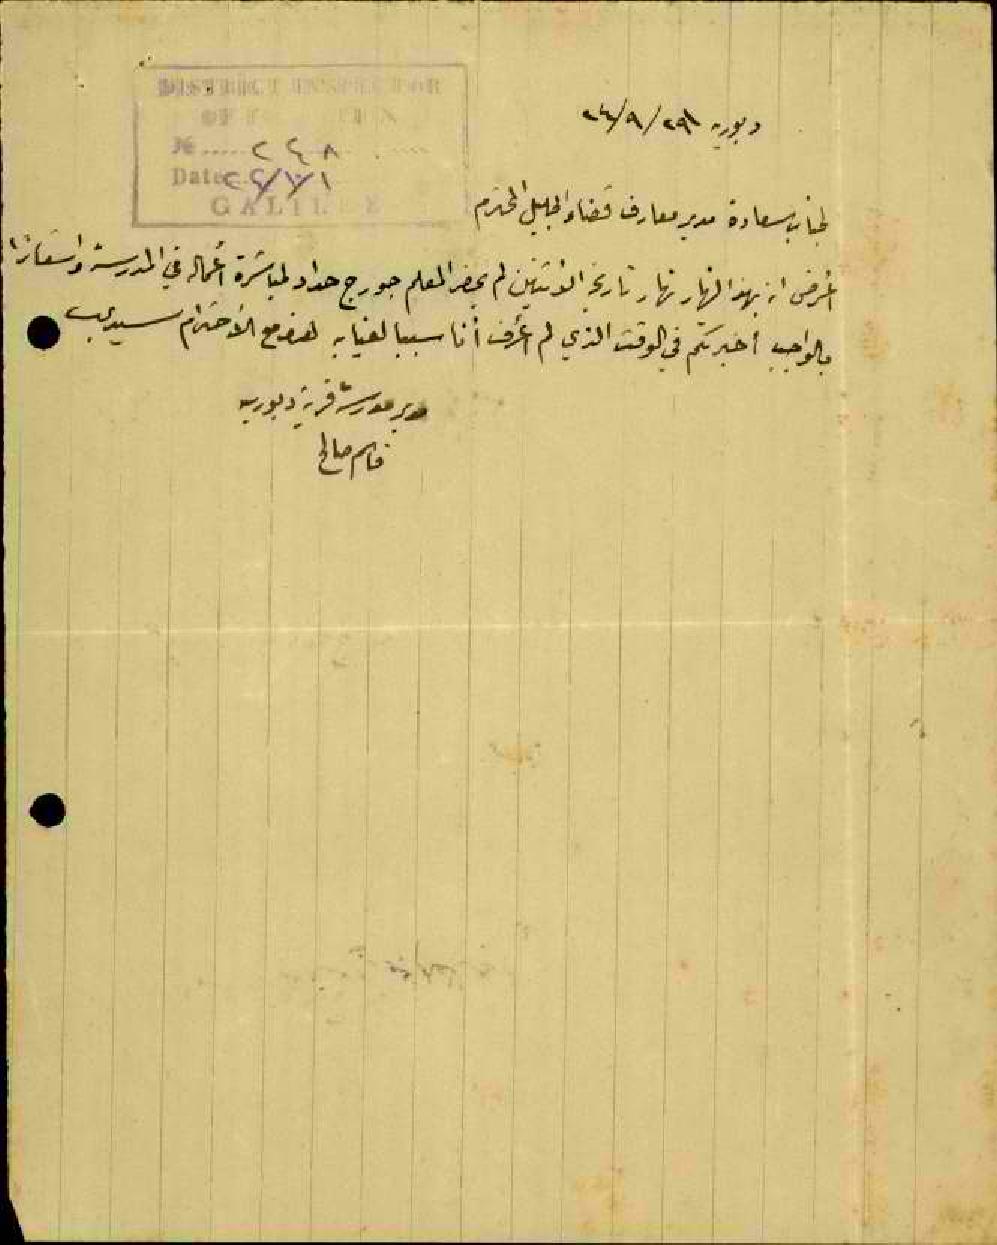 DISTRICT INSPECTOR
OF
№ ..... ٢٤٨
Date
GALILEE
دبوريه ٢٩/٩/٢٤
لجناب سعادة مدير معارف قضاء الجليل المحترم
أعرض ان بهذا النهار نهار تاريخ الاثنين لم يحضر المعلم جورج حداد لمباشرة أعماله في المدرسة
بالواجب أخبرتكم في الوقت الذي لم أعرف أنا سببا لغيابه هذا مع الاحترام سيدي
مدير مدرسة قرية دبوريه
قاسم صالح